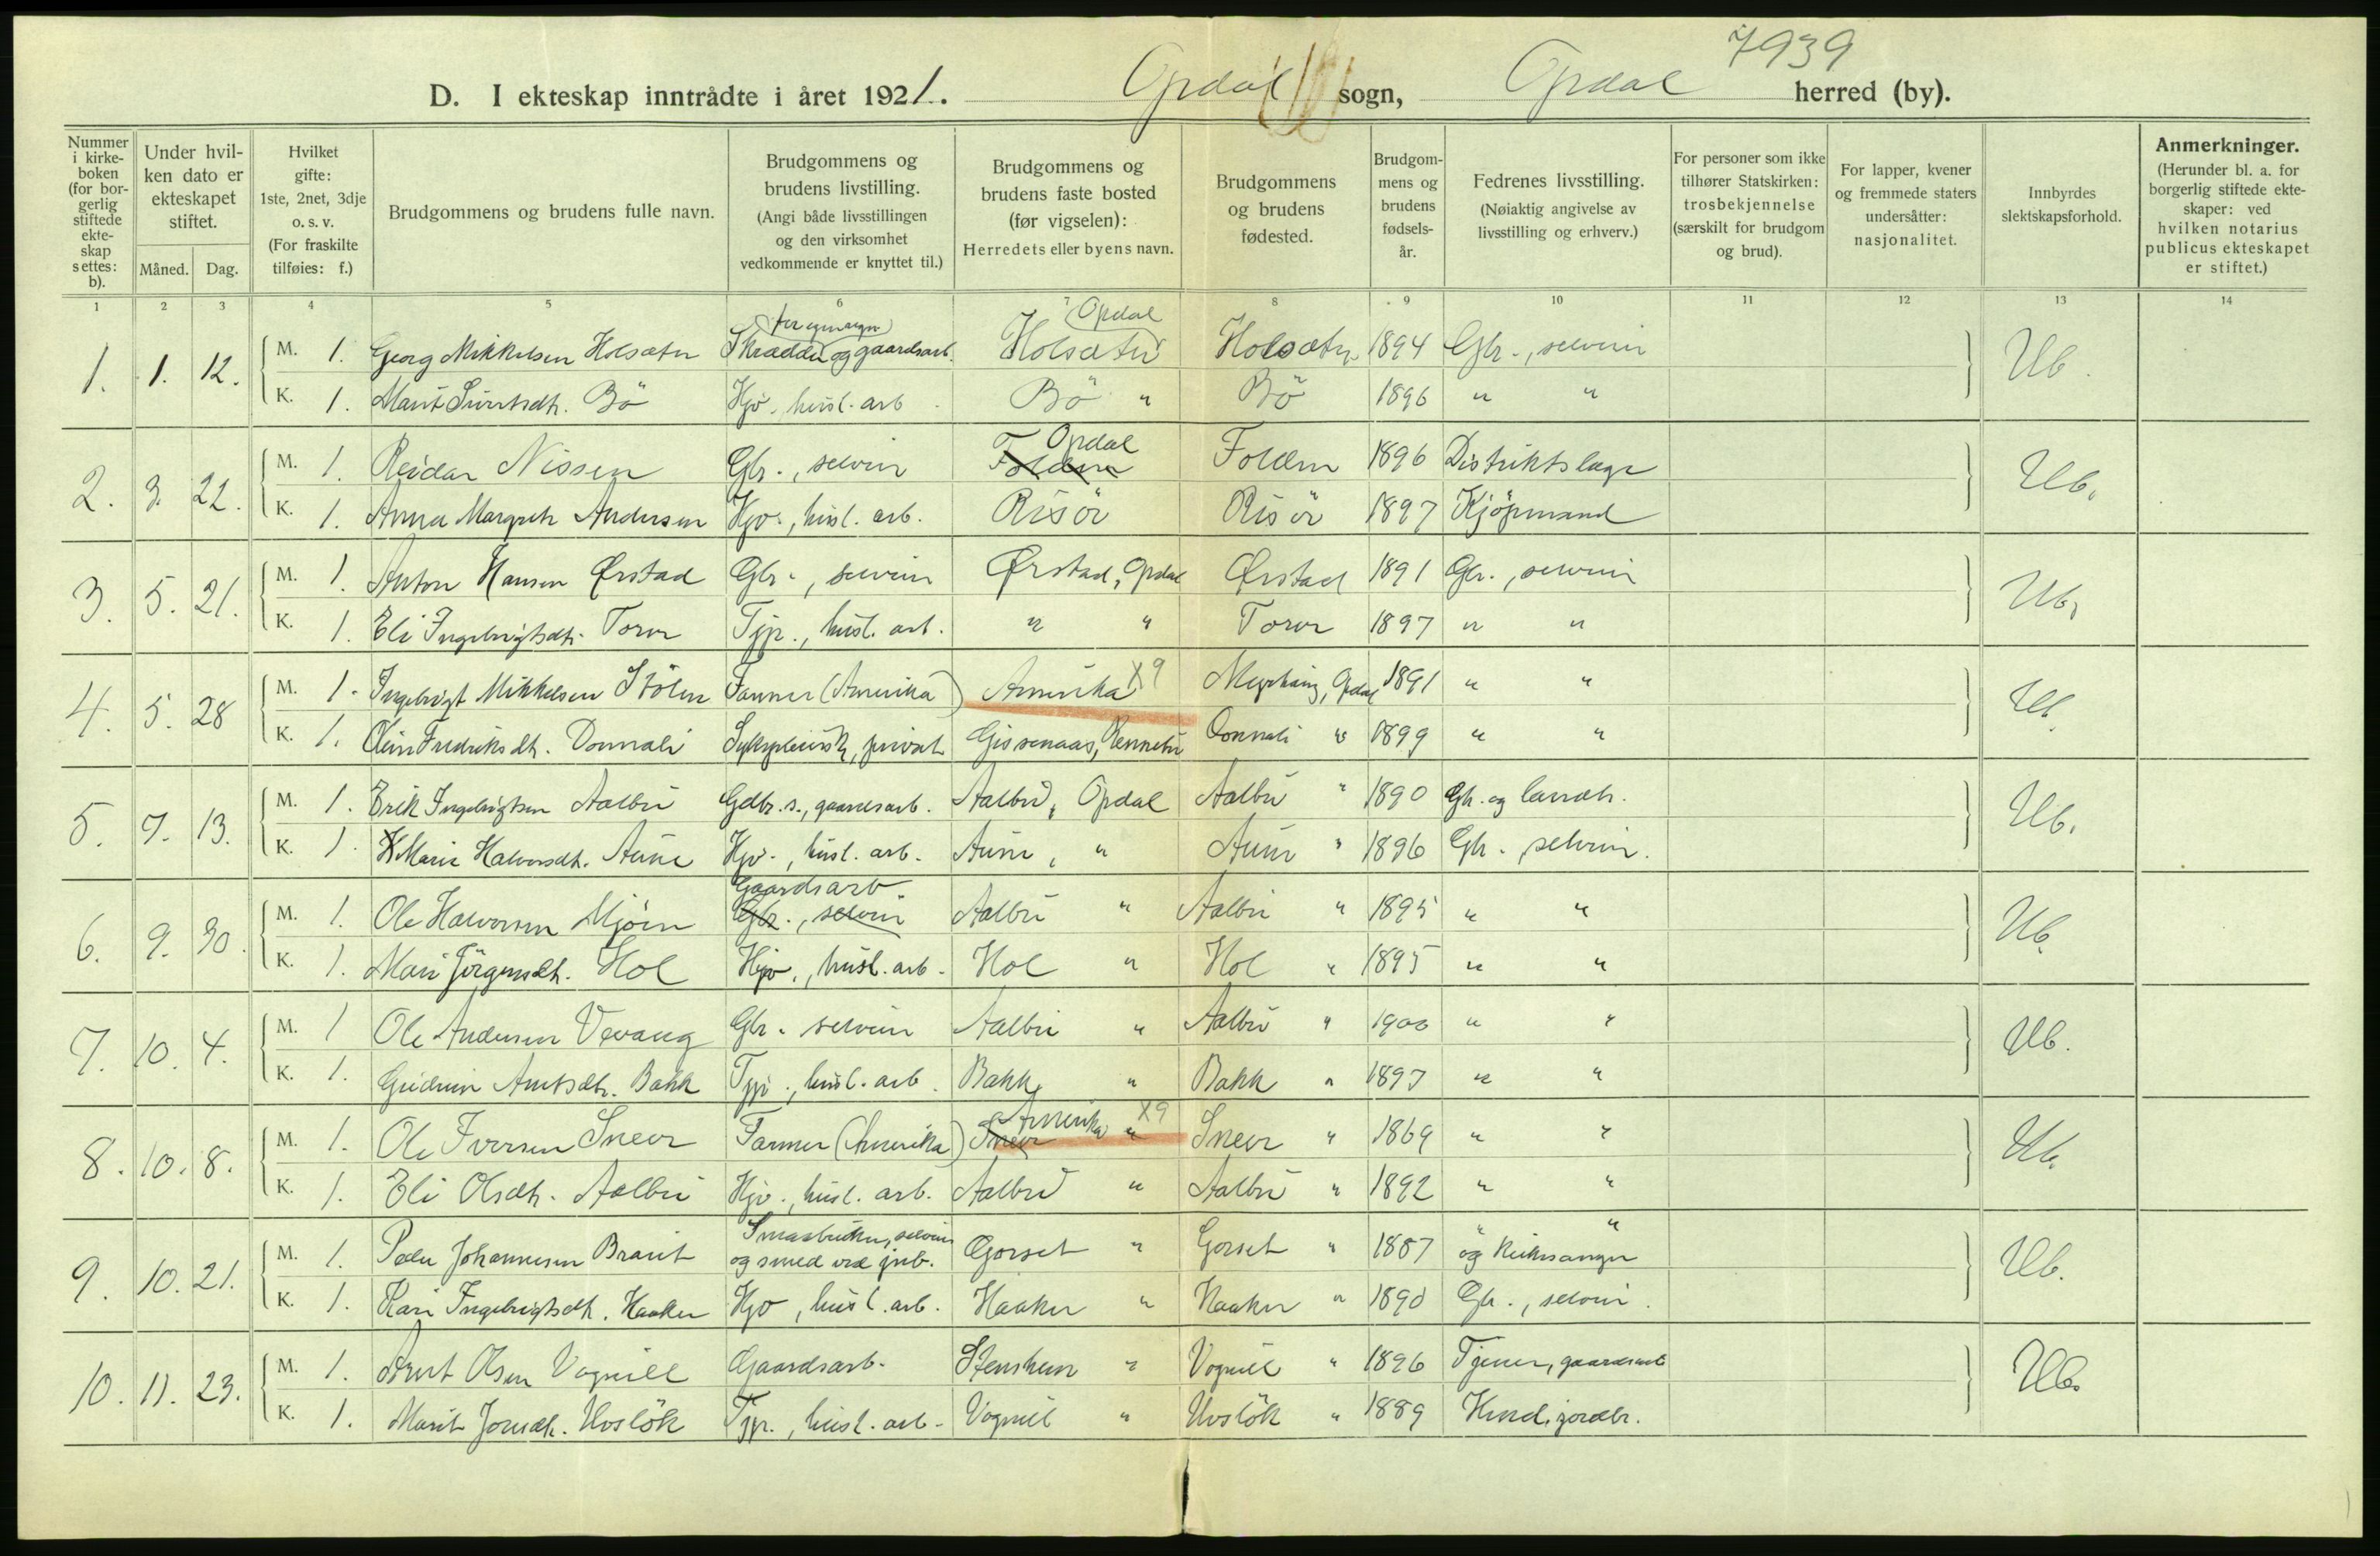 7939
D. I ekteskap inntrådte i året 1921. Opdal sogn, Opdal herred (by).
Nummer i kirke-boken (for bor-gerlig stiftede ekte-skap settes: b).
Under hvil-ken dato er ekteskapet stiftet.
Måned. Dag.
Hvilket gifte: 1ste, 2net, 3dje o. s. v. (For fraskilte tilføies: f.)
Brudgommens og brudens fulle navn.
Brudgommens og brudens livstilling. (Angi både livsstillingen og den virksomhet vedkommende er knyttet til.)
Brudgommens og brudens faste bosted (før vigselen): Herredets eller byens navn.
Brudgommens og brudens fødested.
Brudgom-mens og brudens fødsels-år.
Fedrenes livsstilling. (Nøiaktig angivelse av livsstilling og erhverv.)
For personer som ikke tilhører Statskirken: trosbekjennelse (særskilt for brudgom og brud).
For lapper, kvener og fremmede staters undersåtter: nasjonalitet.
Innbyrdes slektskapsforhold.
Anmerkninger. (Herunder bl. a. for borgerlig stiftede ekte-skaper: ved hvilken notarius publicus ekteskapet er stiftet.)
1 2 3 4 5 6 7 8 9 10 11 12 13 14
Opdal
1. 1. 12. M. 1. Georg Mikkelsen Holsæter Skrædder og gaardsarb. Holsæter Holsæter 1894 Gbr., selveier Ub.
K. 1. Marit Sivertsdtr. Bö Hjv., husl. arb. Bö " Bö 1896 " "
Opdal
2. 3. 22. M. 1. Reidar Nissen Gbr., selveier Folden Folden 1896 Distriktslæge Ub.
K. 1. Anna Margrete Andersen Hjv., husl. arb. Risör Risör 1897 Kjöpmand
3. 5. 21. M. 1. Anton Hansen Ørstad Gbr., selveier Ørstad, Opdal Ørstad 1891 Gbr., selveier Ub.
K. 1. Eli Ingebrigtsdtr. Torve Tjp., husl. arb. " " Torve 1897 " "
4. 5. 28 M. 1. Ingebrigt Mikkelsen Stölen Farmer (Amerika) Amerika X9 Opdal 1891 " " Ub.
K. 1. Fredriksdtr. Donnali privat Rennebu Donnali " 1899 " "
5. 7. 13. M. 1. Erik Ingebrigtsen Aalbu Gdbr. s., gaardsarb. Aalbu, Opdal Aalbu " 1890 Gbr. og Ub.
K. 1. Marie Halvorsdtr. Aune Hjv., husl. arb. Aune, " Aune " 1896 Gbr., selveier.
Gaardsarb.
6. 9. 30. M. 1. Ole Halvorsen Mjöen Gbr., selveier Aalbu " Aalbu " 1895 " " Ub.
K. 1. Mari Jörgensdtr. Hol Hjv., husl. arb. Hol " Hol " 1895 " "
7. 10. 4. M. 1 Ole Andersen Vevang Gbr. selveier Aalbu " Aalbu " 1900 " " Ub.
K. 1. Gudrun Arntsdtr. Bakk Tjp., husl. arb. Bakk " Bakk " 1897 " "
Amerika X9
8. 10. 8. M. 1. Ole Iversen Sneve Farmer (Amerika) Sneve " Sneve " 1869 " " Ub.
K. 1. Eli Olsdtr. Aalbu Hjv., husl. arb. Aalbu " Aalbu " 1892 " "
Smaabruker, selveier " "
9. 10. 21. M. 1. Peder Johannesen Braut og smed ved jrnb. Gorset " Gorset " 1887 og kirkesanger Ub.
K. 1. Kari Ingebrigtsdtr. Haaker Hjv, husl. arb. Haaker " Haaker " 1890 Gbr., selveier.
10. 11. 23. M. 1. Arnt Olsen Vognill Gaardsarb. Stenshem " Vognill " 1896 Tjener, gaardsarb. Ub.
K. 1. Marit Jonsdtr. Hoslök Tjp., husl. arb. Vognill " Hoslök " 1889 jordbr.